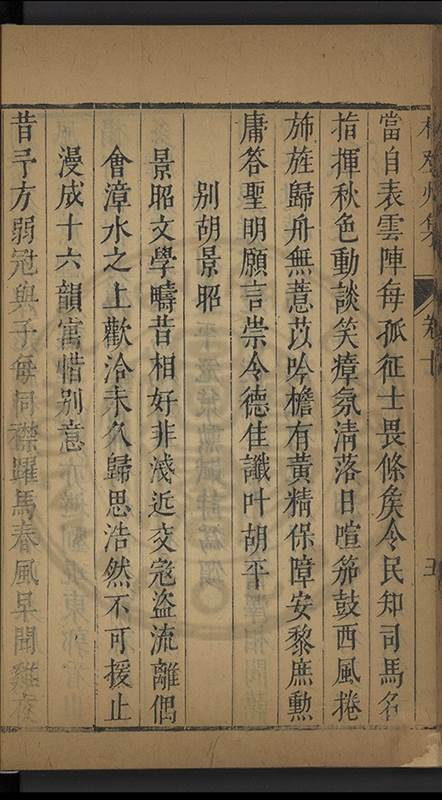 當自表雲陣每孤征士畏條矦令民知司馬名
指揮秋色動談笑瘴氛清落日喧笳鼓西風捲
斾旌歸舟無薏苡吟檐有黃精保障安黎庶勲
庸答聖明願言崇令德佳讖叶胡平
別胡景昭
景昭文學疇昔相好非淺近交寇盜流離偶
會漳水之上歡洽未久歸思浩然不可援止
漫成十六韻寓惜別意
昔予方弱冠與子每同襟躍馬春風早聞雞夜